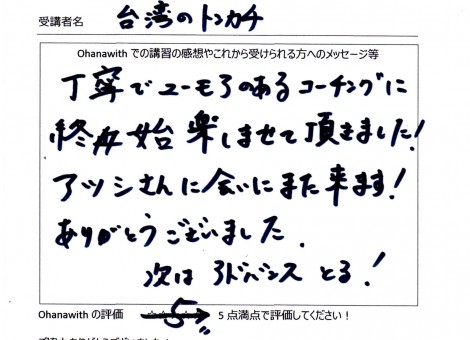 受講者名 台湾のトンカチ
Ohanawith での講習の感想やこれから受けられる方へのメッセージ等
丁寧でユーモアのあるコーチングに
終始 楽しませて頂きました!
アツシさんに会いにまた来ます!
ありがとうございました.
次は アドバンス とる!
Ohanawith の評価 5 5 点満点で評価してください!